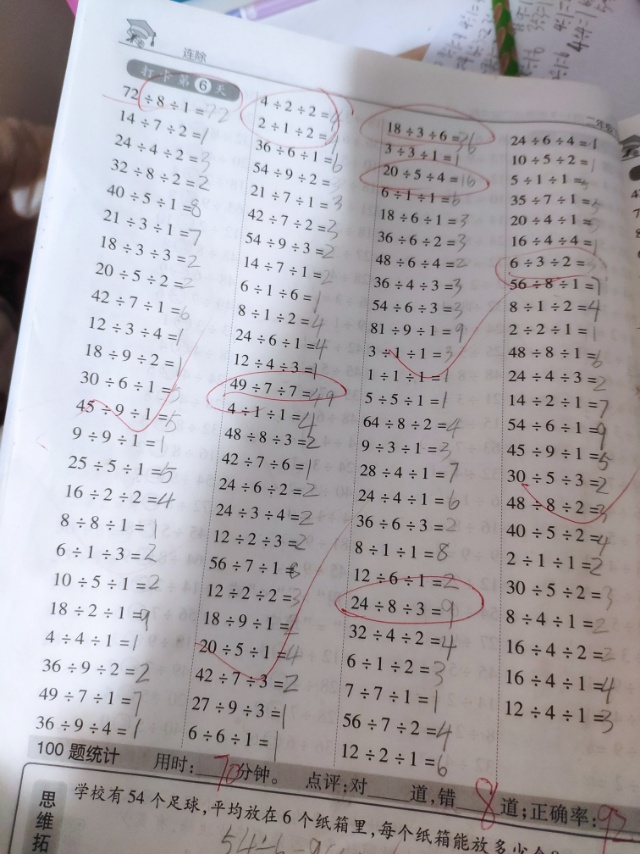 连除
打卡第6天
72÷8÷1=72
14÷7÷2=1
24÷4÷2=3
32÷8÷2=2
40÷5÷1=8
21÷3÷1=7
18÷3÷3=2
20÷5÷2=2
42÷7÷1=6
12÷3÷4=1
18÷9÷2=1
30÷6÷1=5
45÷9÷1=5
9÷9÷1=1
25÷5÷1=5
16÷2÷2=4
8÷8÷1=1
6÷1÷3=2
10÷5÷1=2
18÷2÷1=9
4÷4÷1=1
36÷9÷2=2
49÷7÷1=7
36÷9÷4=1
4÷2÷2=4
2÷1÷2=
36÷6÷1=6
54÷9÷2=3
21÷7÷1=3
42÷7÷2=3
54÷9÷3=2
14÷7÷1=2
6÷1÷6=1
8÷1÷2=4
24÷6÷1=4
12÷4÷3=1
49÷7÷7=49
4÷1÷1=4
48÷8÷3=2
42÷7÷6=1
24÷6÷2=2
24÷3÷4=2
12÷2÷3=2
56÷7÷1=8
12÷2÷2=3
18÷9÷1=2
20÷5÷1=4
42÷7÷3=2
27÷9÷3=1
6÷6÷1=1
18÷3÷6=36
3÷3÷1=1
20÷5÷4=16
6÷1÷1=6
18÷6÷1=3
36÷6÷2=3
48÷6÷4=2
36÷4÷3=3
54÷6÷3=3
81÷9÷1=9
3÷1÷1=3
1÷1÷1=1
5÷5÷1=1
64÷8÷2=4
9÷3÷1=3
28÷4÷1=7
24÷4÷1=6
36÷6÷3=2
8÷1÷1=8
12÷6÷1=2
24÷8÷3=9
32÷4÷2=4
6÷1÷2=3
7÷7÷1=1
56÷7÷2=4
12÷2÷1=6
24÷6÷4=1
10÷5÷2=1
5÷1÷1=5
35÷7÷1=5
20÷4÷1=5
16÷4÷4=1
6÷3÷2=
56÷8÷1=7
8÷1÷2=4
2÷2÷1=1
48÷8÷1=6
24÷4÷3=2
14÷2÷1=7
54÷6÷1=9
45÷9÷1=5
30÷5÷3=2
48÷8÷2=3
40÷5÷2=4
2÷1÷1=2
30÷5÷2=3
8÷4÷1=2
16÷4÷2=2
16÷4÷1=4
12÷4÷1=3
100题统计 用时:70分钟。 点评:对 道,错8道;正确率:92
思维拓
学校有54个足球,平均放在6个纸箱里,每个纸箱能放多少个